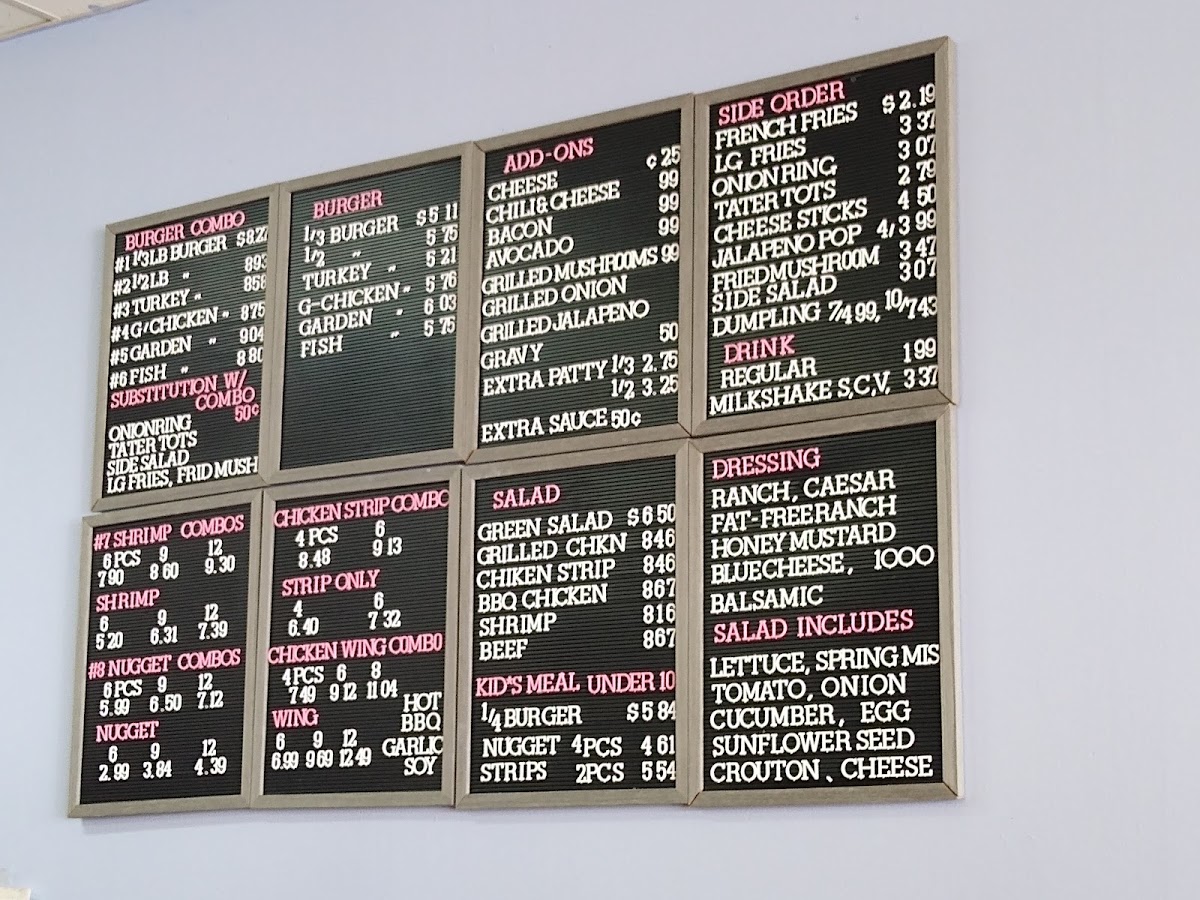 BURGER COMBO
#1 1/3 LB BURGER $8.27
#2 1/2 LB " 893
#3 TURKEY " 858
#4 G/CHICKEN " 875
#5 GARDEN " 904
#6 FISH " 880
SUBSTITUTION W/
COMBO
50¢
ONIONRING
TATER TOTS
SIDE SALAD
LG FRIES, FRID MUSH
BURGER
1/3 BURGER $5 11
1/2 " 5 75
TURKEY " 5 21
G-CHICKEN " 5 76
GARDEN " 6 03
FISH " 5 75
ADD-ONS
CHEESE ¢ 25
CHILI & CHEESE 99
BACON 99
AVOCADO 99
GRILLED MUSHROOMS 99
GRILLED ONION
GRILLED JALAPENO
GRAVY 50
EXTRA PATTY 1/3 2.75
1/2 3.25
EXTRA SAUCE 50¢
SIDE ORDER
FRENCH FRIES $2.19
LG FRIES 3 37
ONION RING 3 07
TATER TOTS 2 79
CHEESE STICKS 4 50
JALAPENO POP 4/3 99
FRIED MUSHROOM 3 47
SIDE SALAD 3 07
DUMPLING 7/4 99, 10/7 43
DRINK
REGULAR 1 99
MILKSHAKE S,C,V, 3 37
#7 SHRIMP COMBOS
6 PCS 9 12
7 90 8 60 9.30
SHRIMP
6 9 12
5 20 6.31 7.39
#8 NUGGET COMBOS
6 PCS 9 12
5.99 6.50 7.12
NUGGET
6 9 12
2.99 3.84 4.39
CHICKEN STRIP COMBO
4 PCS 6
8.48 9 13
STRIP ONLY
4 6
6.40 7 32
CHICKEN WING COMBO
4 PCS 6 8
7 49 9 12 11 04
HOT
WING BBQ
6 9 12 GARLIC
6.99 9 69 12 49 SOY
SALAD
GREEN SALAD $6 50
GRILLED CHKN 846
CHIKEN STRIP 846
BBQ CHICKEN 867
SHRIMP 816
BEEF 867
KID*S MEAL UNDER 10
1/4 BURGER $5 84
NUGGET 4PCS 4 61
STRIPS 2PCS 5 54
DRESSING
RANCH, CAESAR
FAT-FREE RANCH
HONEY MUSTARD
BLUECHEESE, 1000
BALSAMIC
SALAD INCLUDES
LETTUCE, SPRING MIS
TOMATO, ONION
CUCUMBER, EGG
SUNFLOWER SEED
CROUTON, CHEESE